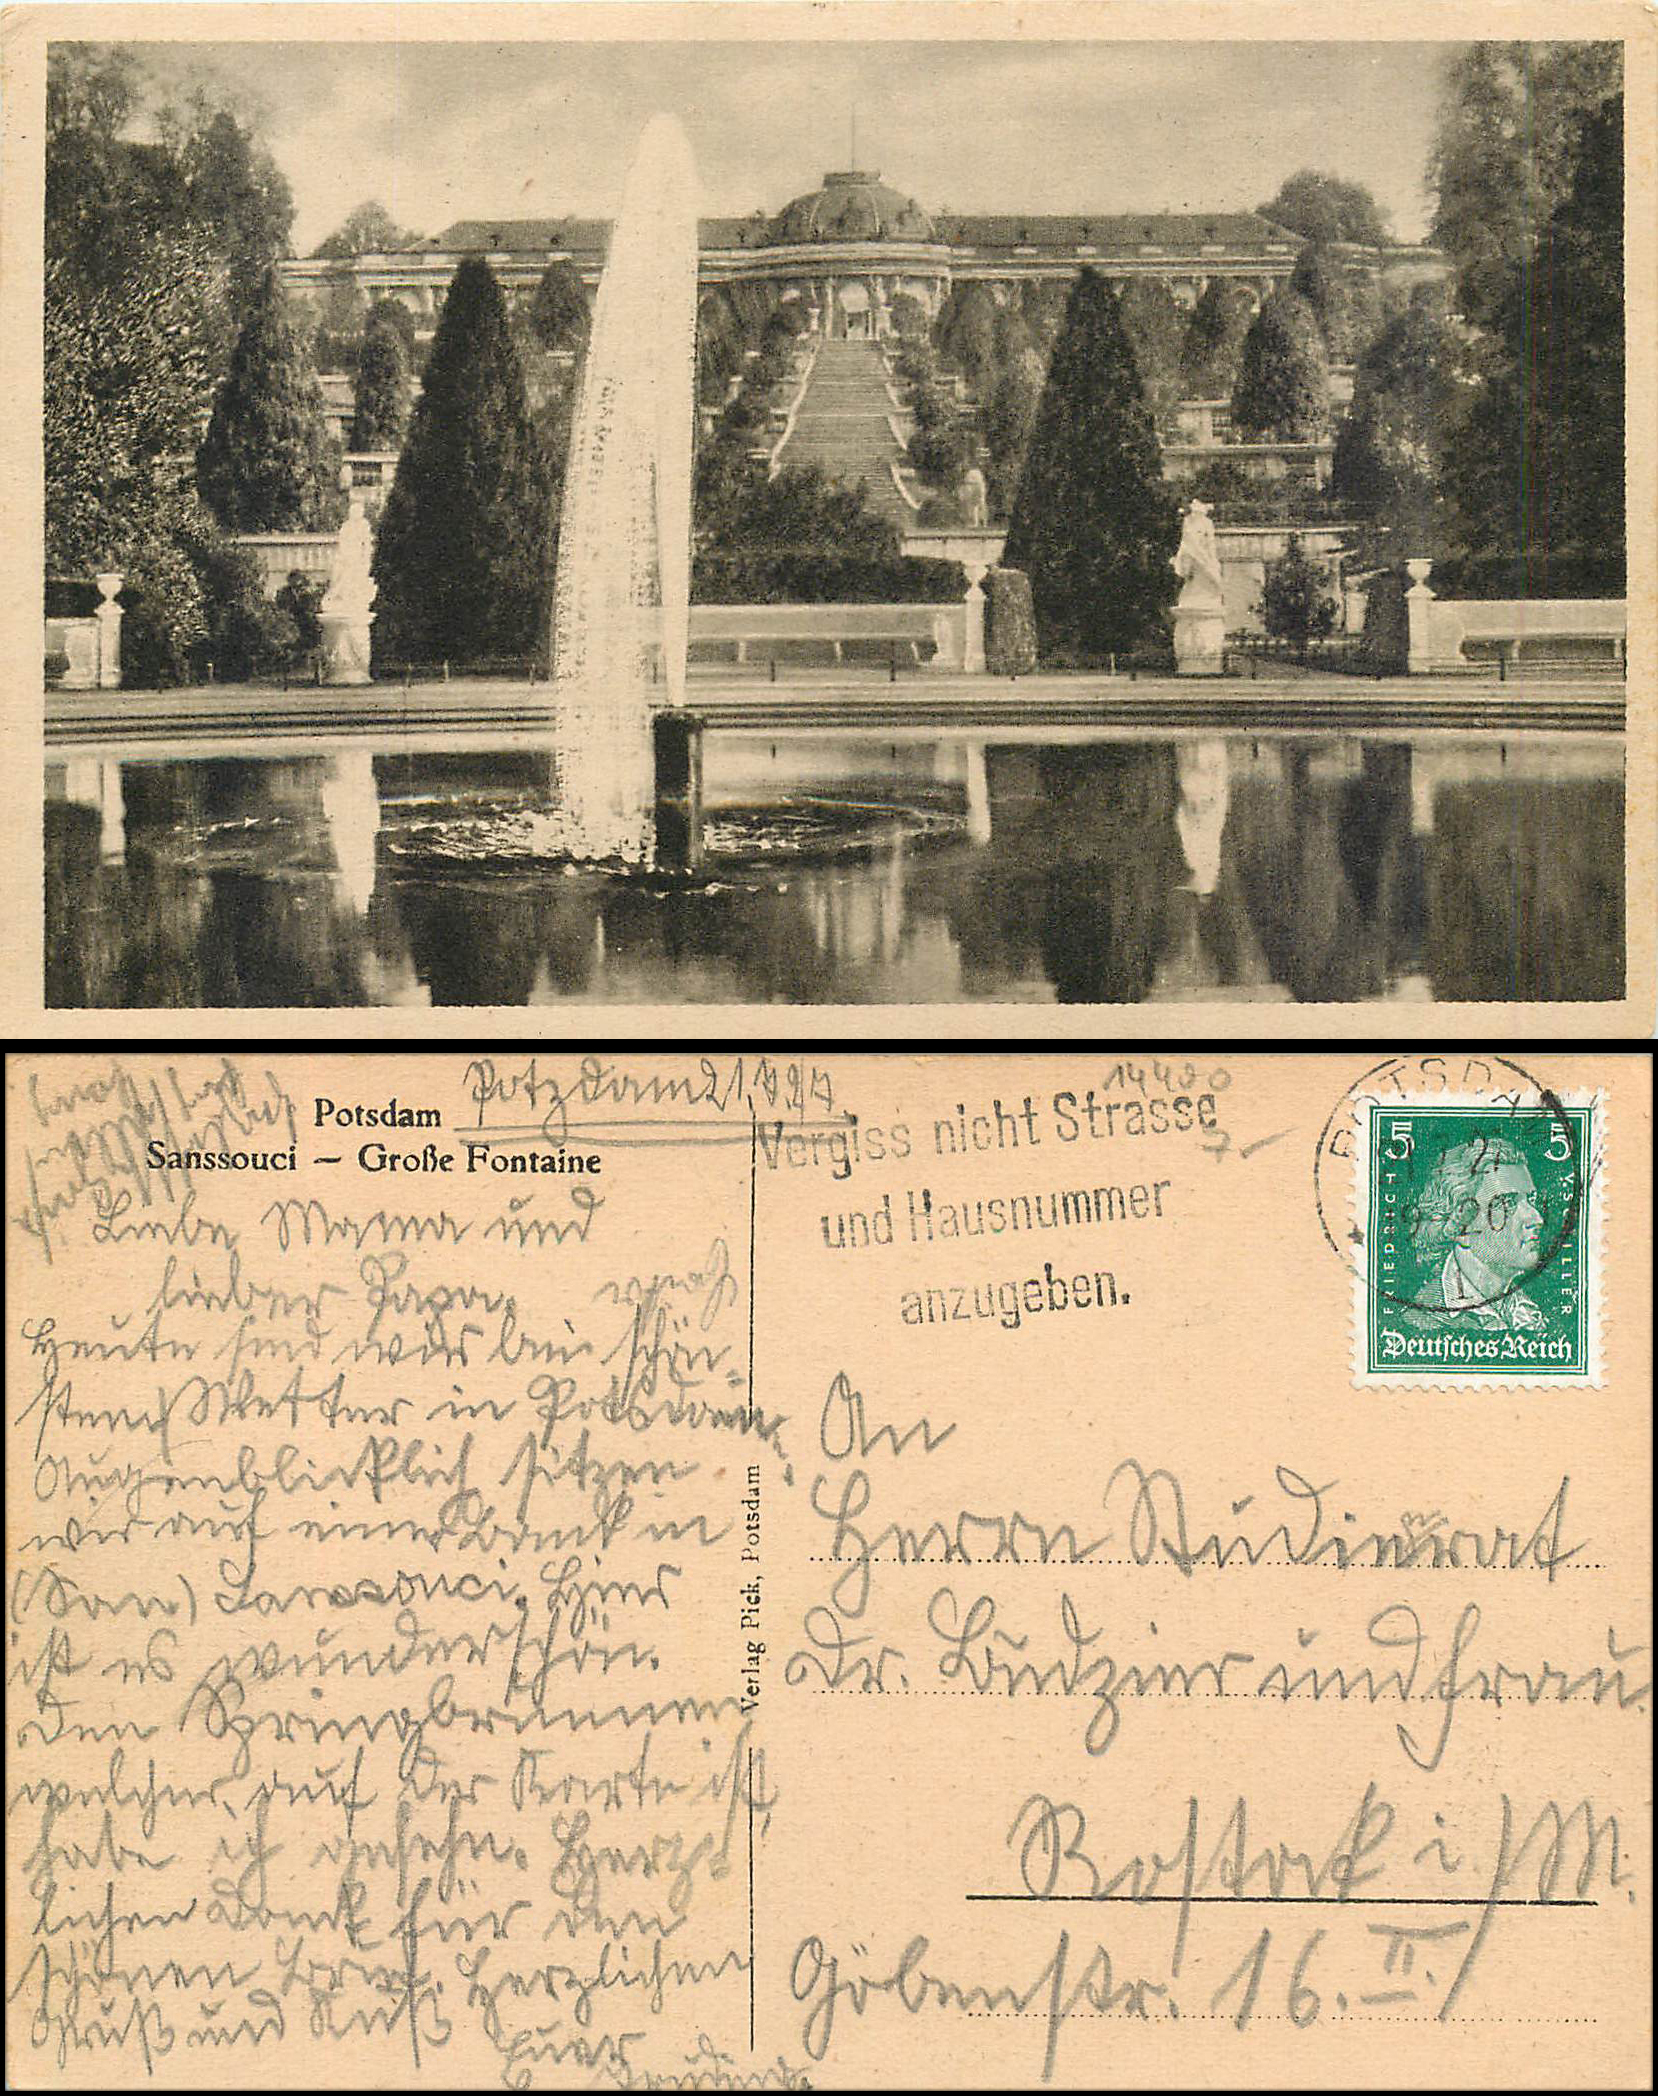 Potsdam
Sanssouci – Große Fontaine
Potzdam 21.
Liebe Mama und
lieber Papa.
Heute sind wir bei schön-
sten Wetter in Potsdam.
Augenblicklich sitzen
wir auf einer Bank in
(San) Sanssouci. Hier
ist es wunderschön.
Den Springbrunnen
welcher, auf der Karte ist,
habe ich gesehn. Herz-
lichen Dank für den
schönen Brief. Herzlichen
Gruß und Kuß
Euer
Verlag Pick, Potsdam
14400
Vergiss nicht Strasse
und Hausnummer
anzugeben.
POTSDAM
9-20
1
5 5
FRIEDRICH V. SCHILLER
Deutsches Reich
An
Herrn Studienrat
Dr. Budzier und Frau.
Rostock i/M.
Göbenstr. 16. II.